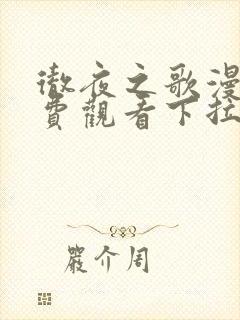 徹夜之歌漫
費觀看下拉
嚴介周